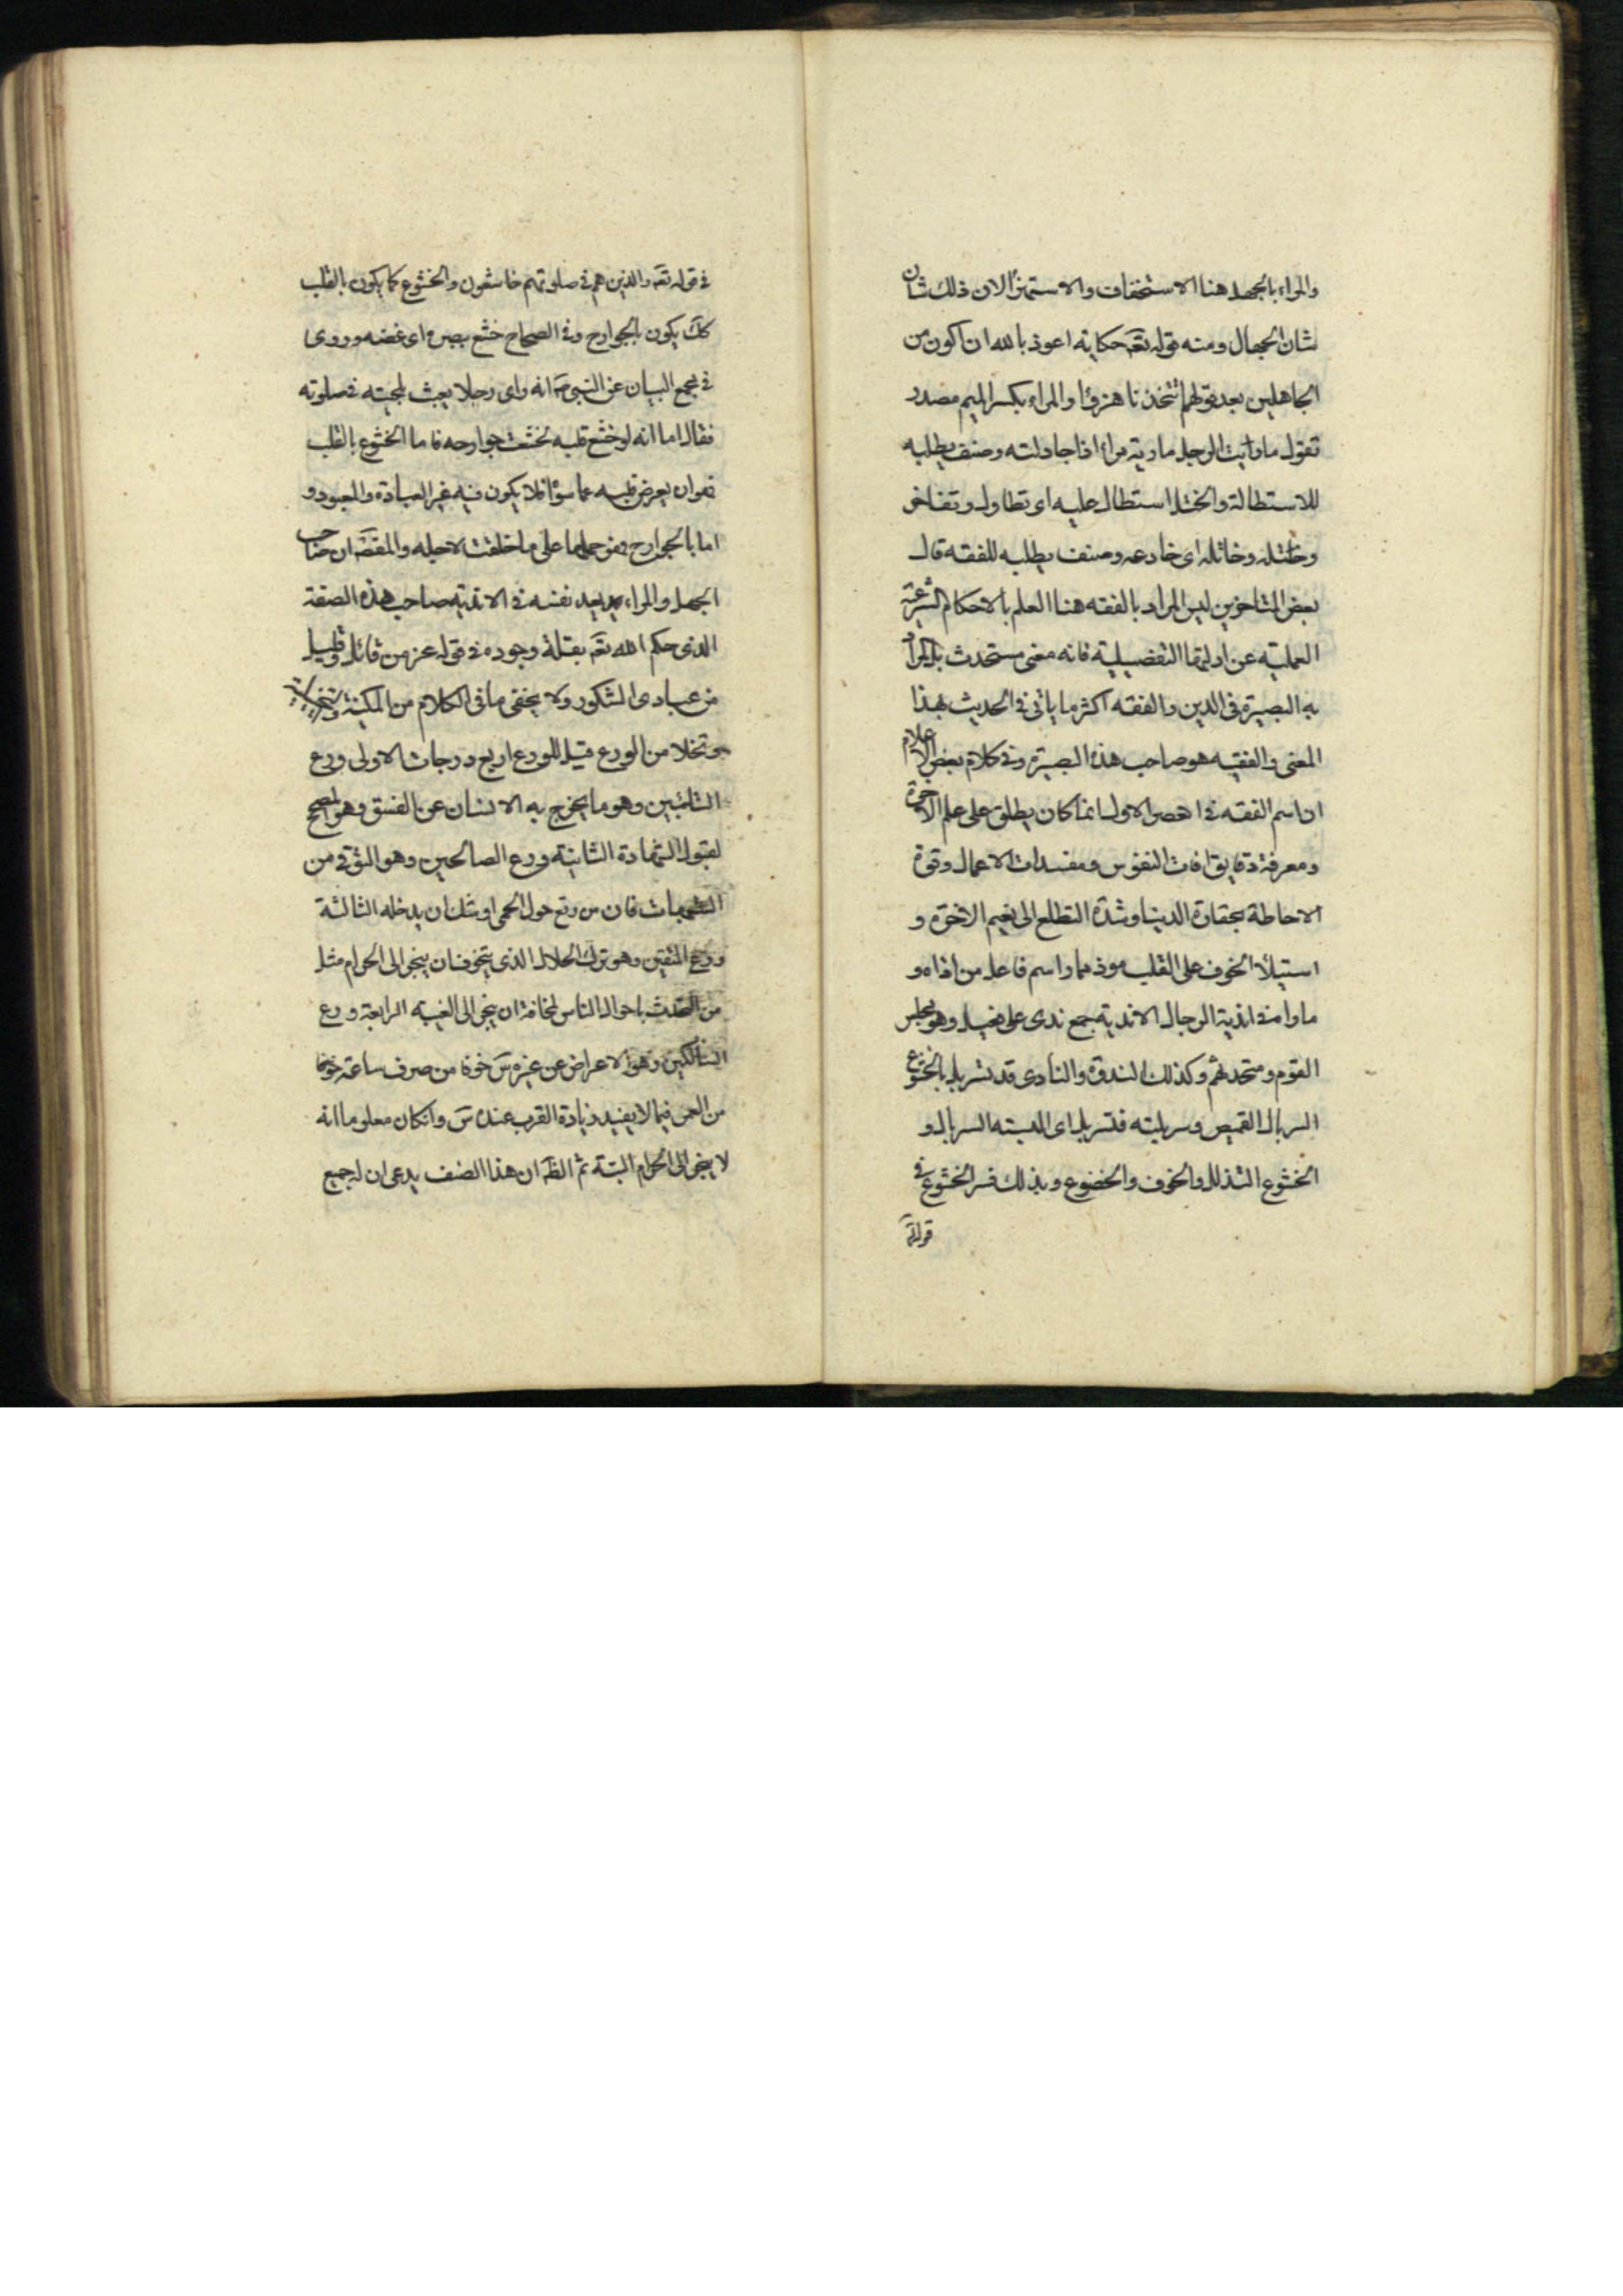 والمراد بالجهل هنا الاستخفاف والاستهزاء لان ذلك شان
شان الجهال ومنه قوله تعه حكاية اعوذ بالله ان اكون من
الجاهلين بعد قولهم اتتخذنا هزوا والمراء بكسر الميم مصدر
تقول ماريت الرجل ماريه مراء اذا جادلته وصنف يطلبه
للاستطالة والختل استطال عليه اى تطاول وتفاخر
وختله وخاتله اى خادعه وصنف يطلبه للفقه قال
بعض المتاخرين ليس المراد بالفقه هنا العلم بالاحكام الشرعية
العملية عن ادلتها التفصيلية فانه معنى مستحدث بل المراد
به البصيرة فى الدين والفقه اكثر ما ياتى فى الحديث بهذا
المعنى والفقيه هو صاحب هذه البصيرة وفى كلام بعض الاعلام
ان اسم الفقه فى العصر الاول انما كان يطلق على علم الاخرة
ومعرفة دقايق افات النفوس ومفسدات الاعمال وقوة
الاحاطة بحقارة الدنيا وشدة التطلع الى نعيم الاخرة و
استيلاء الخوف على القلب موذ ممار اسم فاعل من اذاه و
ماراه اندية الرجال الاندية جمع ندى على فعيل وهو مجلس
القوم ومتحدثهم وكذلك الندوة والنادى قد تسربل بالخشوع
السربال القميص وسربلته فتسربل اى البسته السربال و
الخشوع التذلل والخوف والخضوع وبذلك فسر الخشوع فى
قوله تعه
فى قوله تعه والذين هم فى صلوتهم خاشعون والخشوع كما يكون بالقلب
كك يكون بالجوارح وفى الصحاح خشع بصره اى غضه وروى
فى مجمع البيان عن النبى صه انه راى رجلا يعبث بلحيته فى صلوته
فقال اما انه لو خشع قلبه لخشعت جوارحه فاما الخشوع بالقلب
فهو ان يعرض قلبه عما سواه فلا يكون فيه غير العبادة والمعبود و
اما بالجوارح فهو حملها على ما خلقت لاجله والمقصه ان صاحب
الجهل والمراء يعد نفسه فى الاندية صاحب هذه الصفة
الذى حكم الله تعه بقلة وجوده فى قوله عز من قائل وقليل
من عبادى الشكور ولا يخفى ما فى الكلام من المكنية
وتخلا من الورع قيل للورع اربع درجات الاولى ورع
التائبين وهو ما يخرج به الانسان عن الفسق وهو المصحح
لقبول الشهادة الثانية ورع الصالحين وهو التوقى من
الشبهات فان من رتع حول الحمى اوشك ان يدخله الثالثة
ورع المتقين وهو ترك الحلال الذى يتخوف ان ينجر الى الحرام مثل
من التحدث باحوال الناس لمخافة ان ينجر الى الغيبة الرابعة ورع
السالكين وهو الاعراض عن غيره سه خوفا من صرف ساعة
من العمر فيما لا يفيد زيادة القرب عنده سه وانكان معلوما انه
لا ينجر الى الحرام البتة ثم الظه ان هذا الصنف يدعى ان له جميع